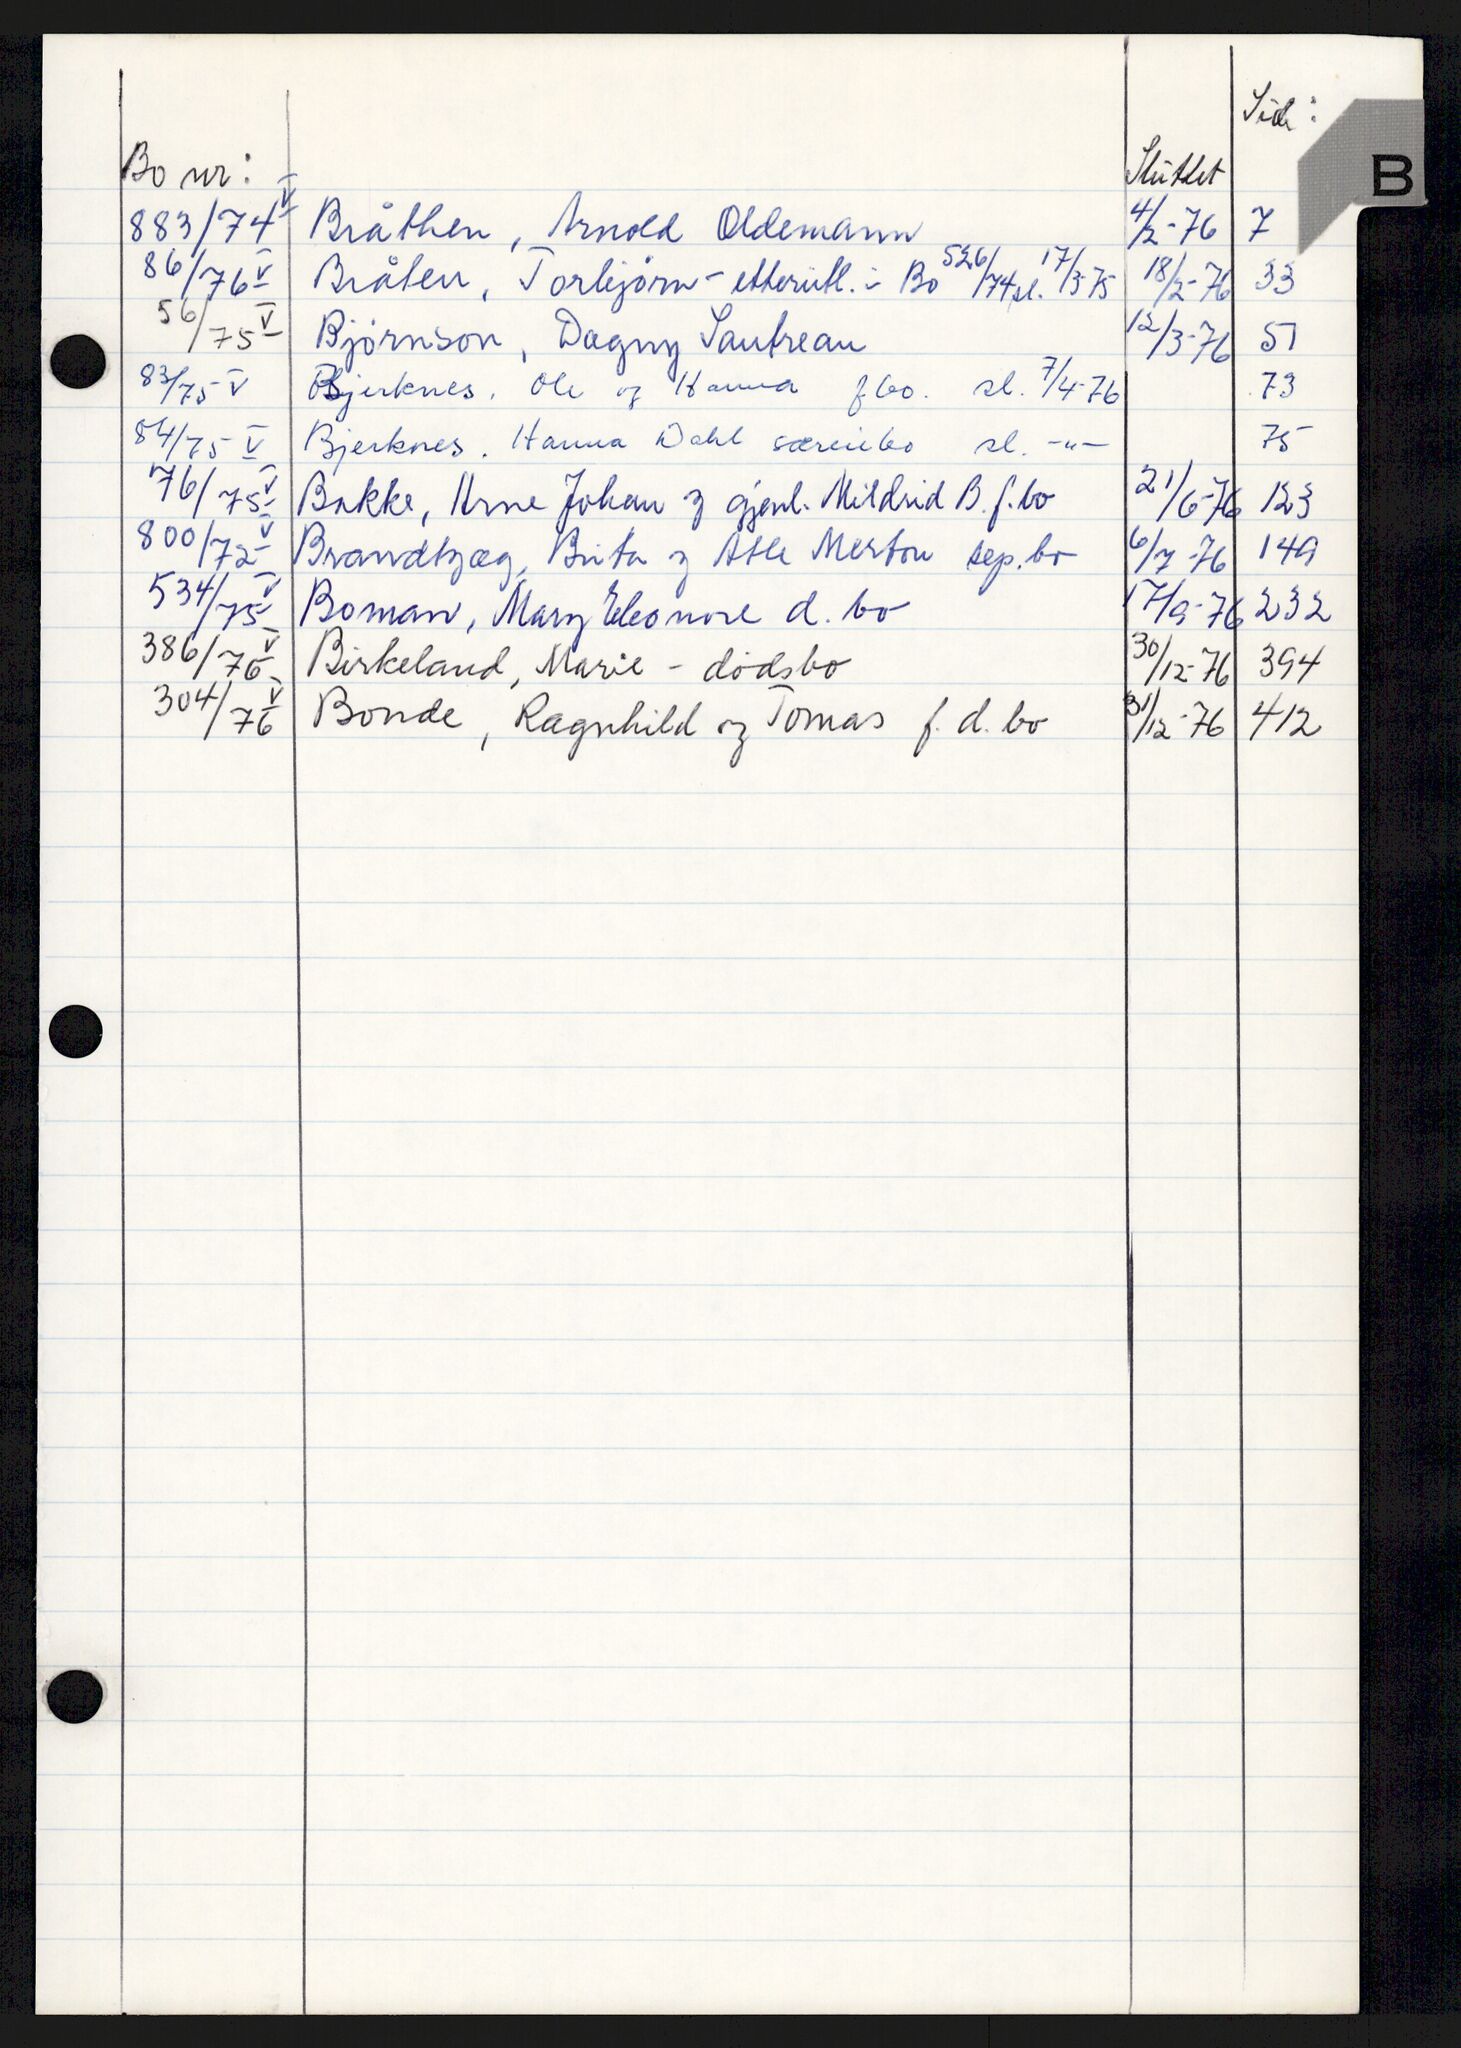 Side:
B
Bo nr: Sluttet
883/74 V Bråthen, Arnold Oldemann 4/2-76 7
86/76 V Bråten, Torbjørn - etterutl. i Bo 526/74 sl. 17/3-75 18/2-76 33
56/75 V Bjørnson, Dagny Sautreau 12/3-76 51
83/75 V Bjerknes, Ole og Hanna f.bo. sl. 7/4-76 73
84/75 V Bjerknes. Hanna Dahl særeiebo sl. -"- 75
76/75 V Bakke, Arne Johan og gjenl. Mildrid B. f.bo 21/6-76 123
800/72 V Brandtzæg, Brita og Atle Merton sep.bo 6/7-76 149
534/75 V Boman, Mary Eleonore d. bo 17/9-76 232
386/76 V Birkeland, Marie - dødsbo 30/12-76 394
304/76 V Bonde, Ragnhild og Tomas f. d. bo 31/12-76 412